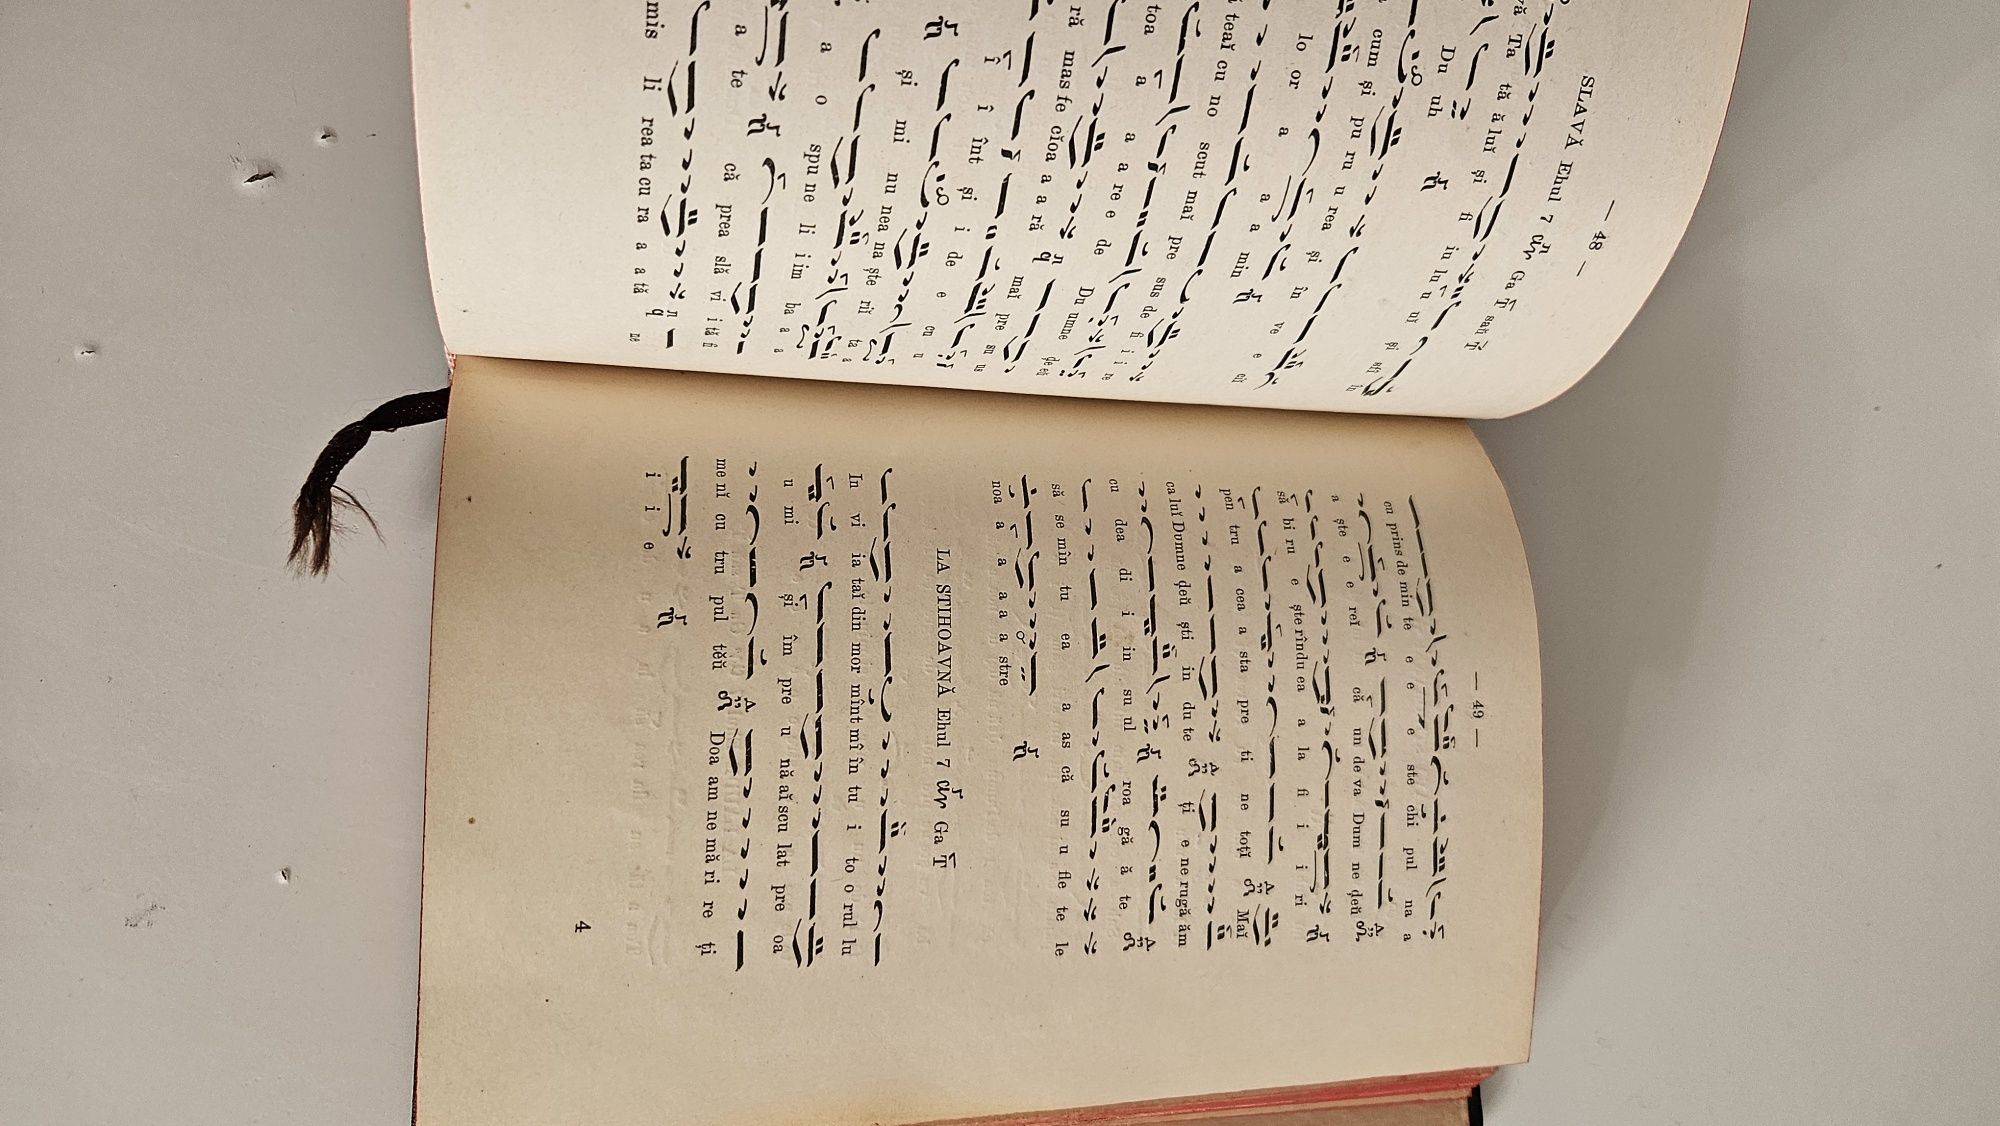 — 48 —
SLAVĂ Ehul 7 Ga
vă Ta tă ă luĭ și fi iu lu u uĭ și sfi
Du uh cum și pu ru u rea și în ve e cĭ
lo or a a a min
ĭ teaĭ cu no scut maĭ pre sus de fi i i re
toa a a a re e de Du umne
ră mas fe cĭoa a a ră maĭ pre su us
î î înt și i de e cu u
și mi nu nea na ște riĭ ta a
a o spu ne li i im ba a a
a te că prea slă vi i tă fi
mis li rea ta cu ra a a tă ne
— 49 —
cu prins de min te e e e ste chi pul na a
a ște e e reĭ că un de va Dum ne deŭ
să bi ru e ște rîndu ea a la fi i i ri
pen tru a cea a sta pre ti ne toțĭ Maĭ
ca luĭ Dumne deŭ ști in du te ți e ne rugă ăm
cu dea di i in su ul roa gă ă te
să se mîn tu ea a as că su u fle te le
noa a a a a a stre
LA STIHOAVNĂ Ehul 7 Ga
In vi ia taĭ din mor mînt mî în tu i to o rul lu
u mi și îm pre u nă aĭ scu lat pre oa
me nĭ cu tru pul tĕŭ Doa am ne mă ri re ți
i i e
4